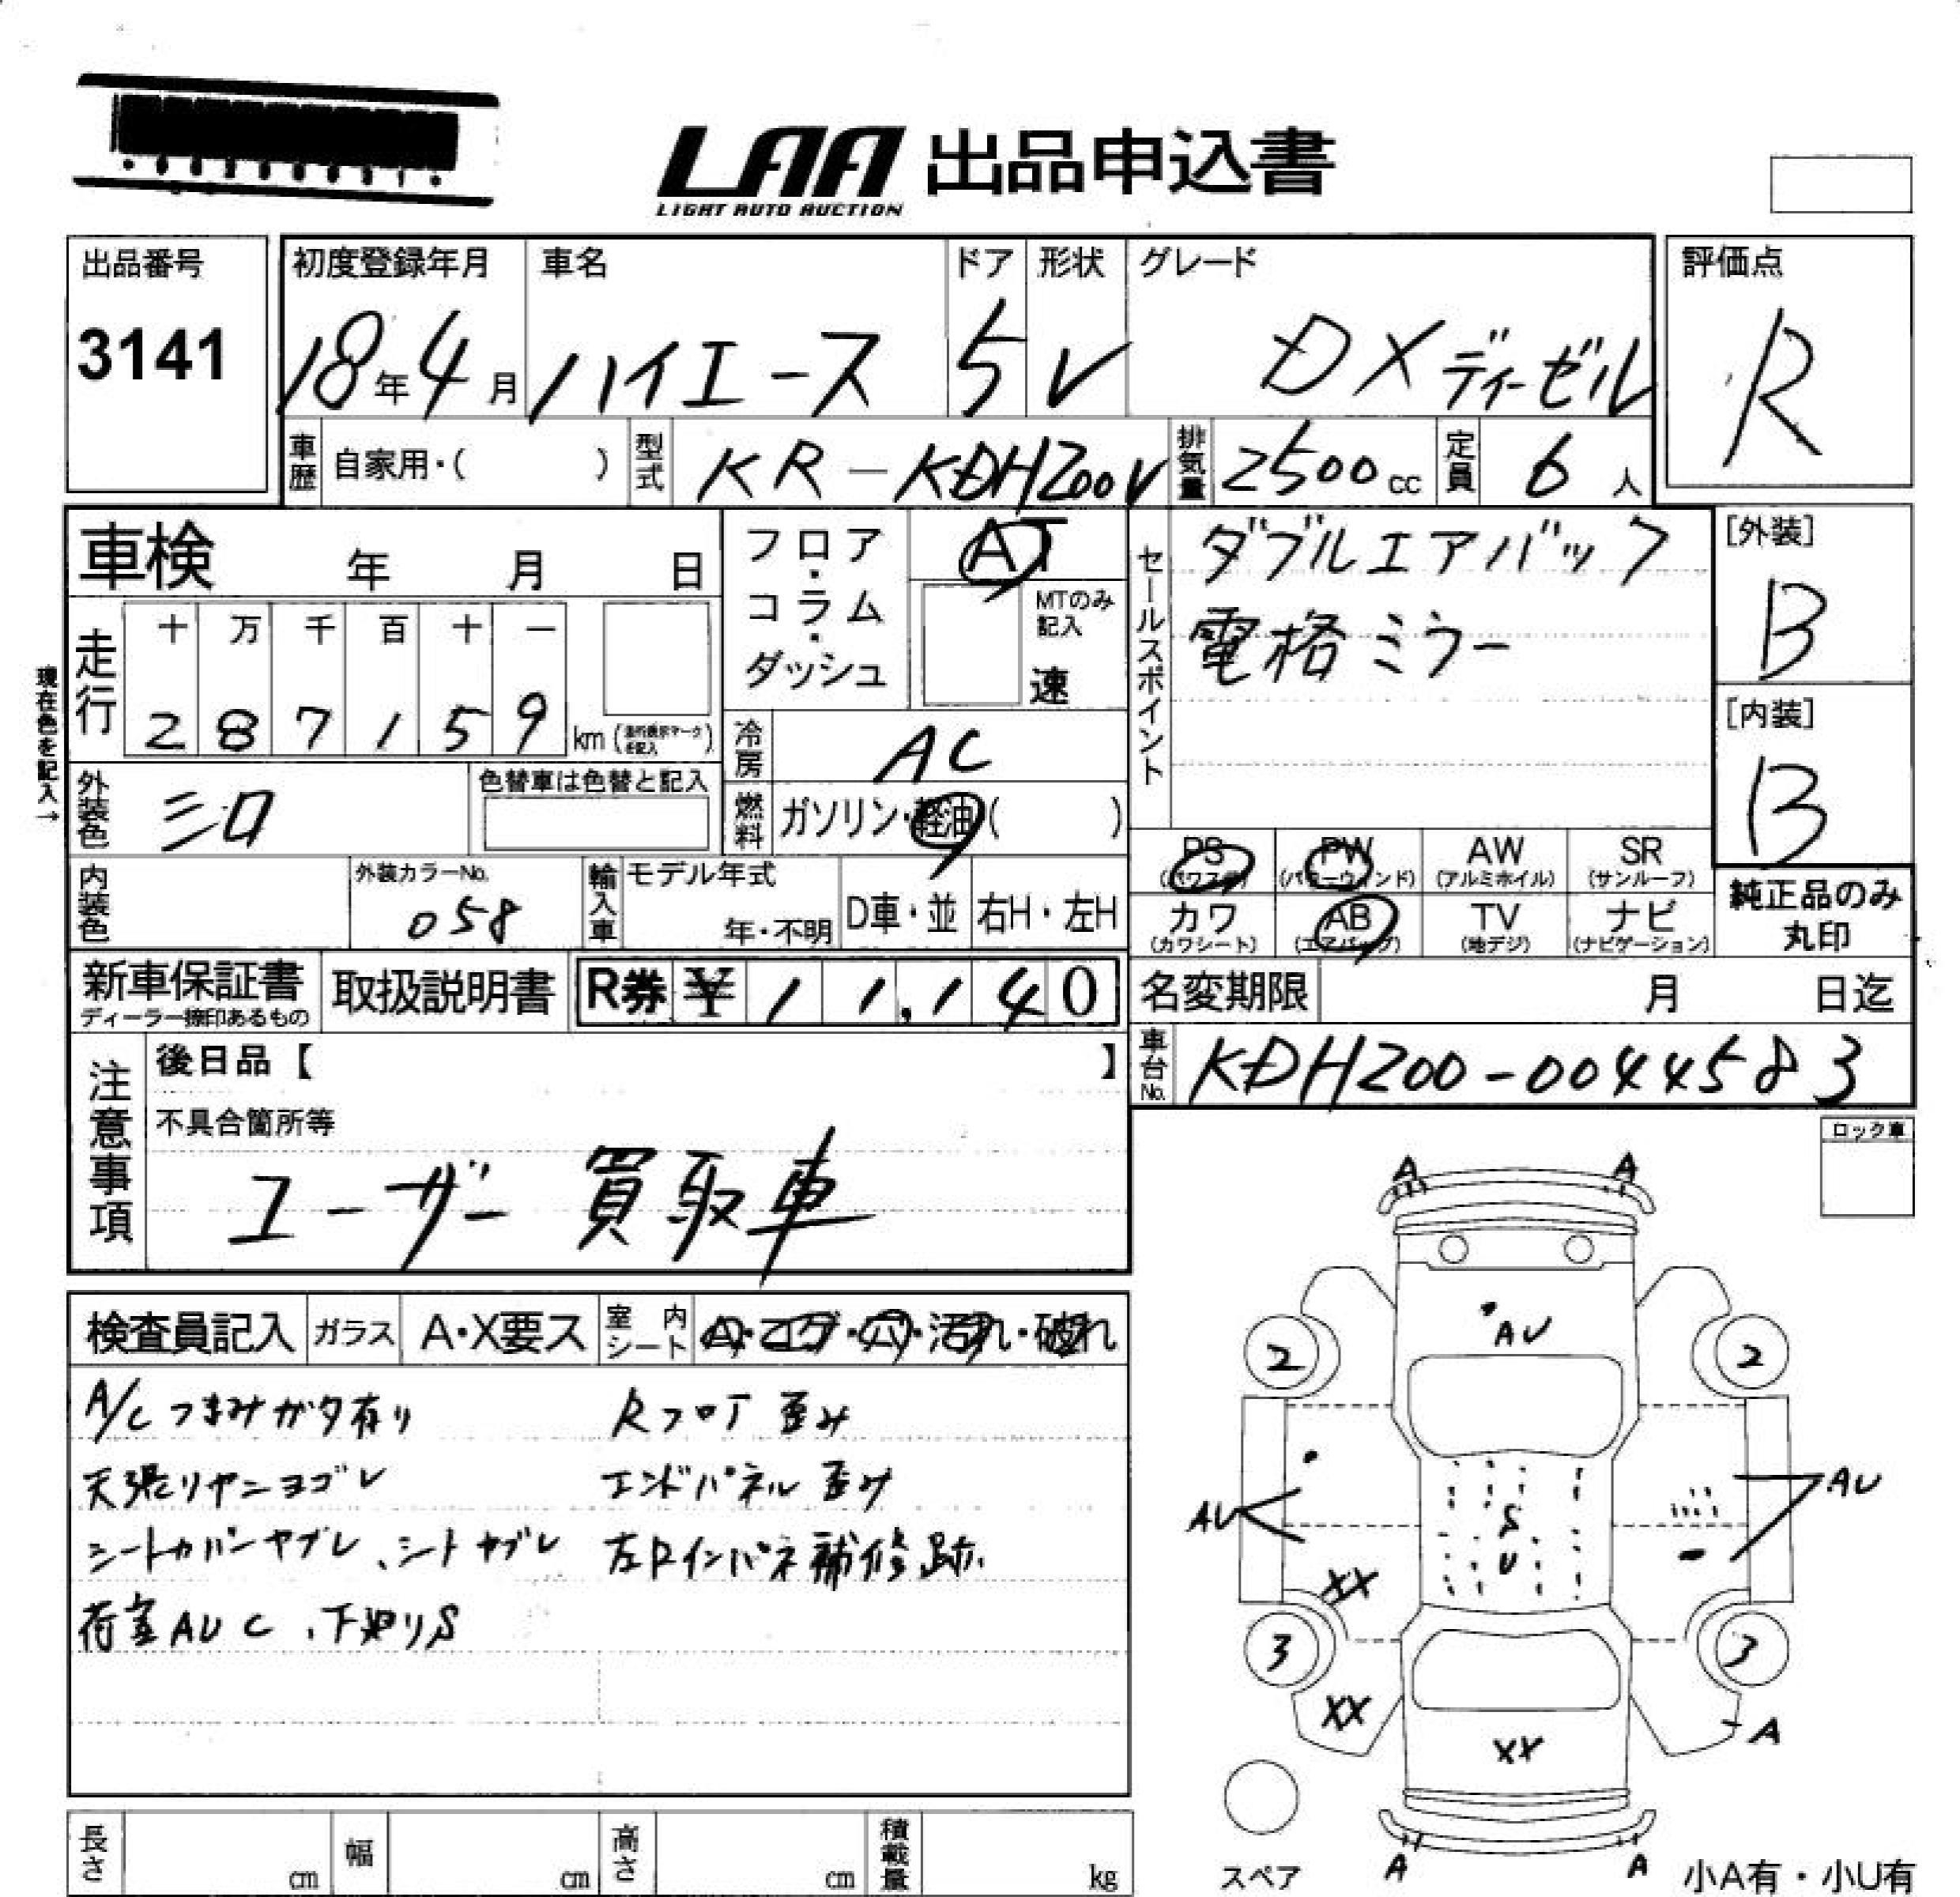 LAA 出品申込書
LIGHT AUTO AUCTION
出品番号
3141
初度登録年月
18年4月
車名
ハイエース
ドア
5
形状
V
グレード
DXディーゼル
評価点
R
車歴 自家用・( )
型式 KR-KDH200V
排気量 2500cc
定員 6人
車検 年 月 日
走行
十 万 千 百 十 一
2 8 7 1 5 9 km
現在色を記入→
外装色 シロ
色替車は色替と記入
内装色
外装カラーNo.
058
フロア・コラム・ダッシュ
AT
MTのみ記入
速
冷房 AC
燃料 ガソリン・軽油( )
輸入車
モデル年式
年・不明
D車・並
右H・左H
セールスポイント
ダブルエアバック
電格ミラー
[外装]
B
[内装]
B
PS (パワステ)
PW (パワーウィンド)
AW (アルミホイル)
SR (サンルーフ)
カワ (カワシート)
AB (エアバッグ)
TV (地デジ)
ナビ (ナビゲーション)
純正品のみ
丸印
新車保証書
ディーラー捺印あるもの
取扱説明書
R券 ¥ 11,140
名変期限 月 日迄
車台No. KDH200-0044583
注意事項
後日品【 】
不具合箇所等
ユーザー買取車
ロック車
検査員記入
ガラス
A・X要ス
室内シート
A・コゲ・穴・汚れ・破れ
A/Cつまみガタ有り
天張りヤニヨゴレ
シートカバーヤブレ、シートヤブレ
荷室AUC、下廻りS
Rフロア歪み
エンドパネル歪み
左Rインパネ補修跡
A A
AU
2 2
AU
S
U
AU
XX
3 3
XX
XX
A
A A
スペア
小A有・小U有
長さ cm
幅 cm
高さ cm
積載量 kg